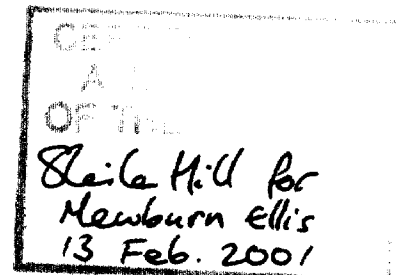 A
OF THE
Sheila Hill for
Mewburn Ellis
13 Feb. 2001